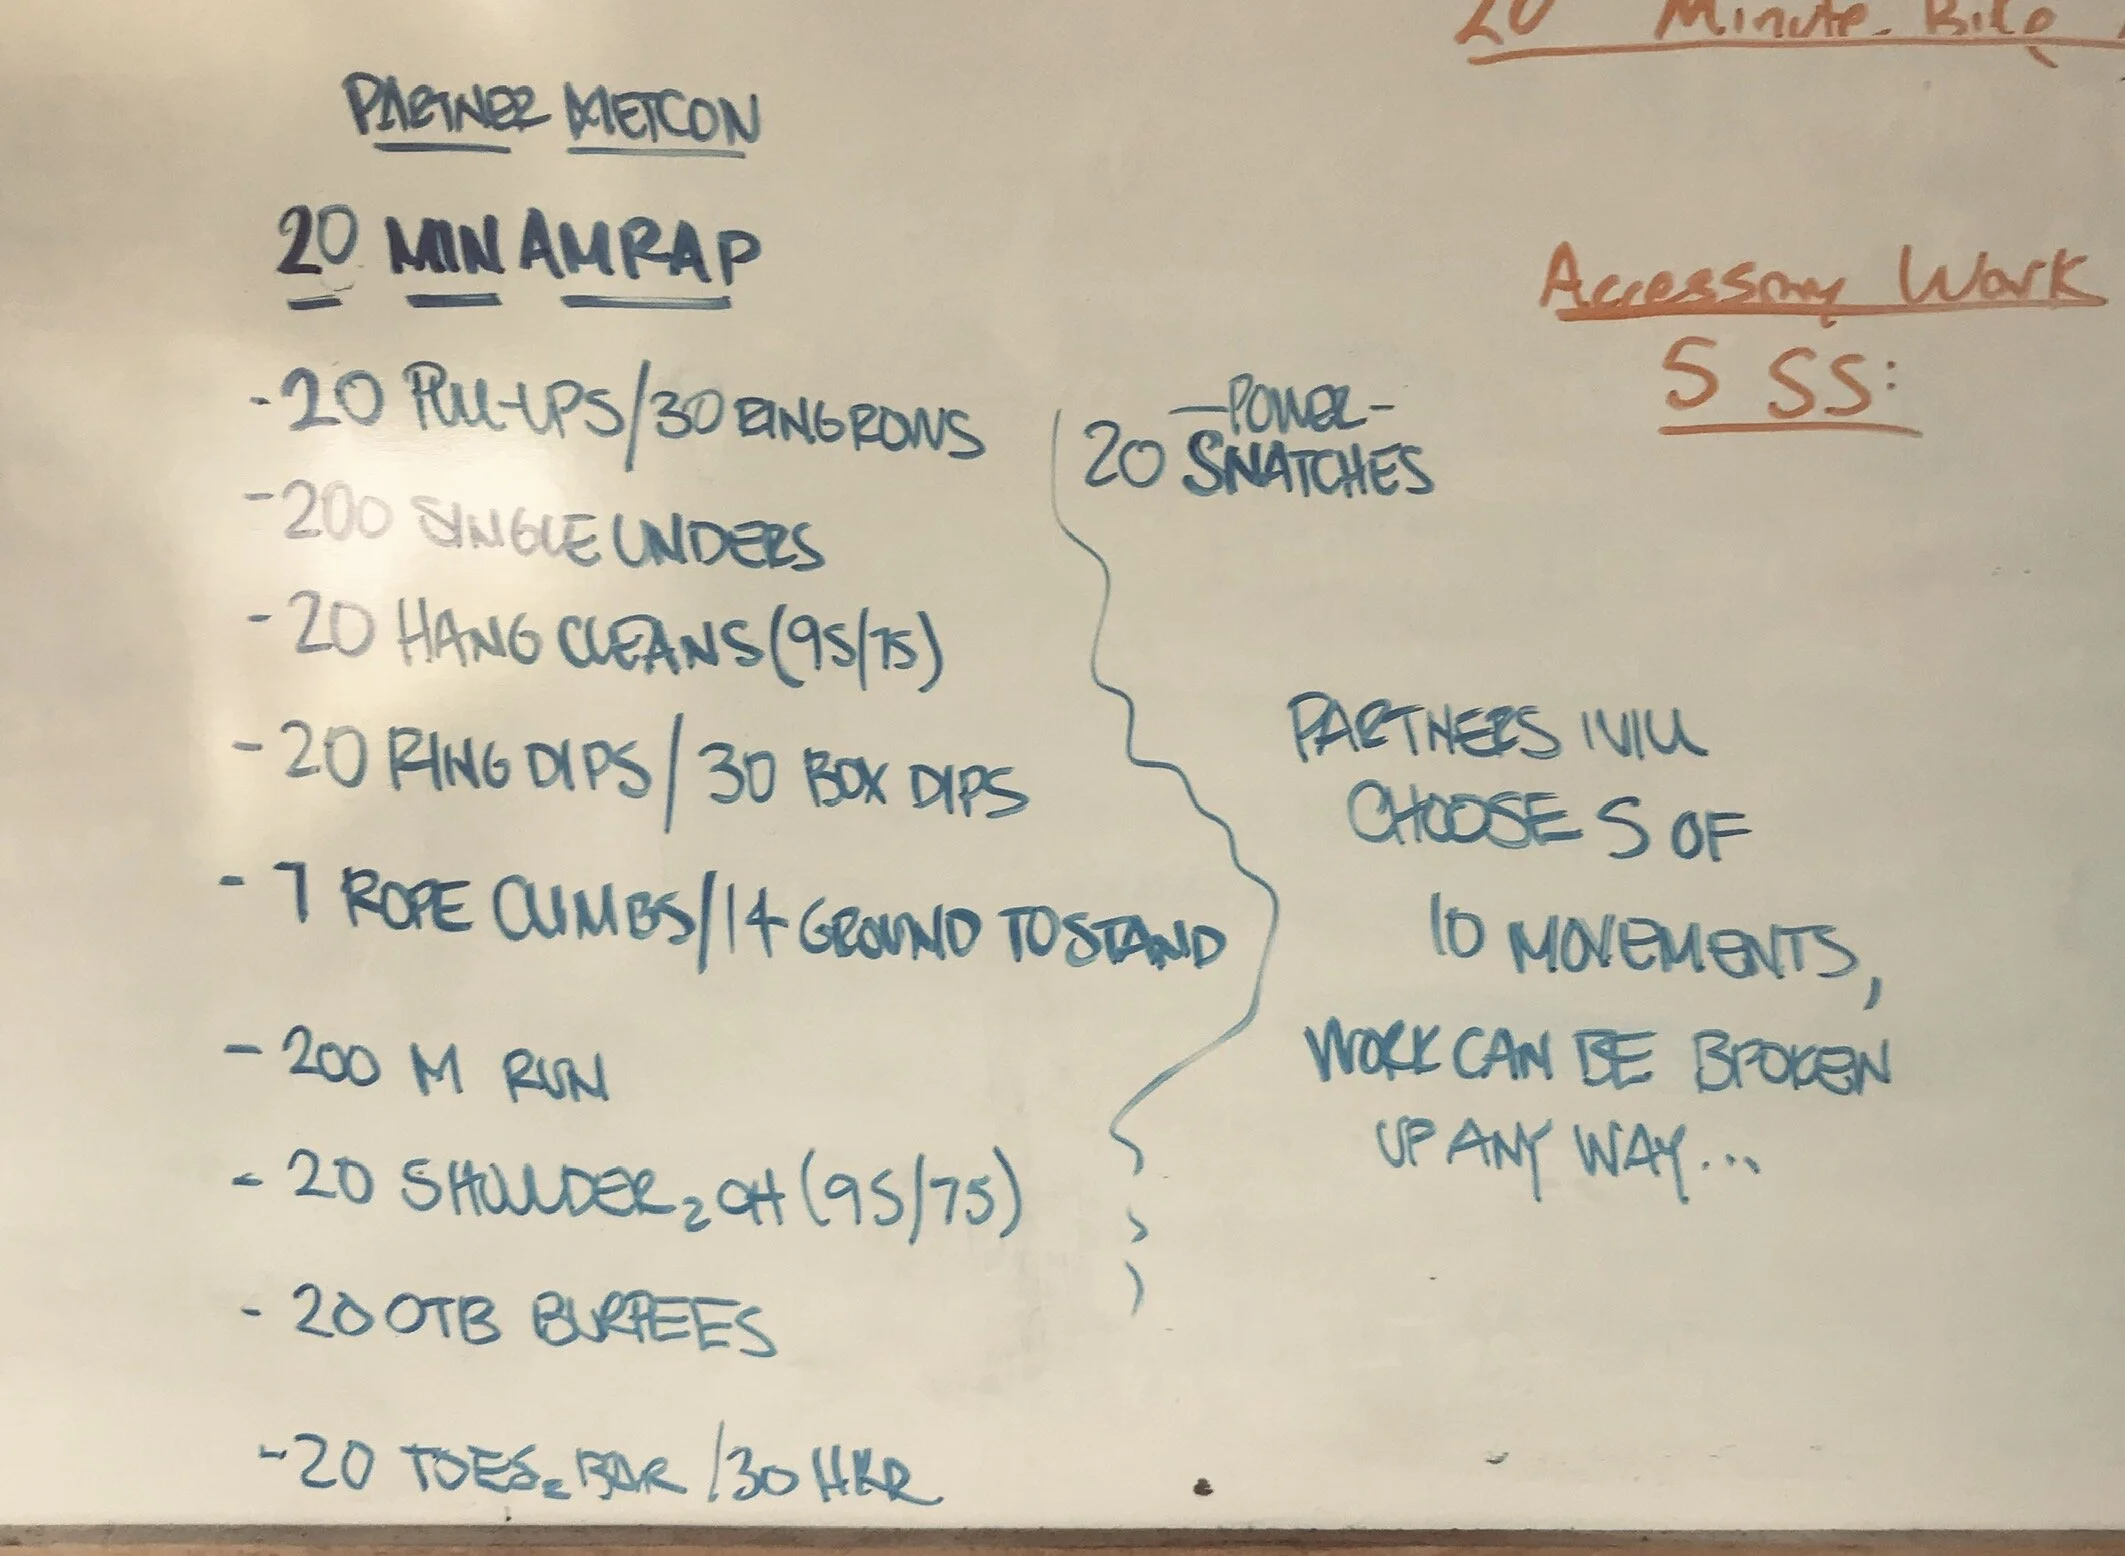 20 Minute Bike
PARTNER METCON
20 MIN AMRAP
- 20 PULL-UPS/30 RING ROWS
- 200 SINGLE UNDERS
- 20 HANG CLEANS (95/75)
- 20 RING DIPS / 30 BOX DIPS
- 7 ROPE CLIMBS/14 GROUND TO STAND
- 200 M RUN
- 20 SHOULDER 2 OH (95/75)
- 20 OTB BURPEES
- 20 TOES 2 BAR / 30 HKR
- POWER -
20 SNATCHES
PARTNERS WILL
CHOOSE 5 OF
10 MOVEMENTS,
WORK CAN BE BROKEN
UP ANY WAY...
Accessory Work
5 SS: